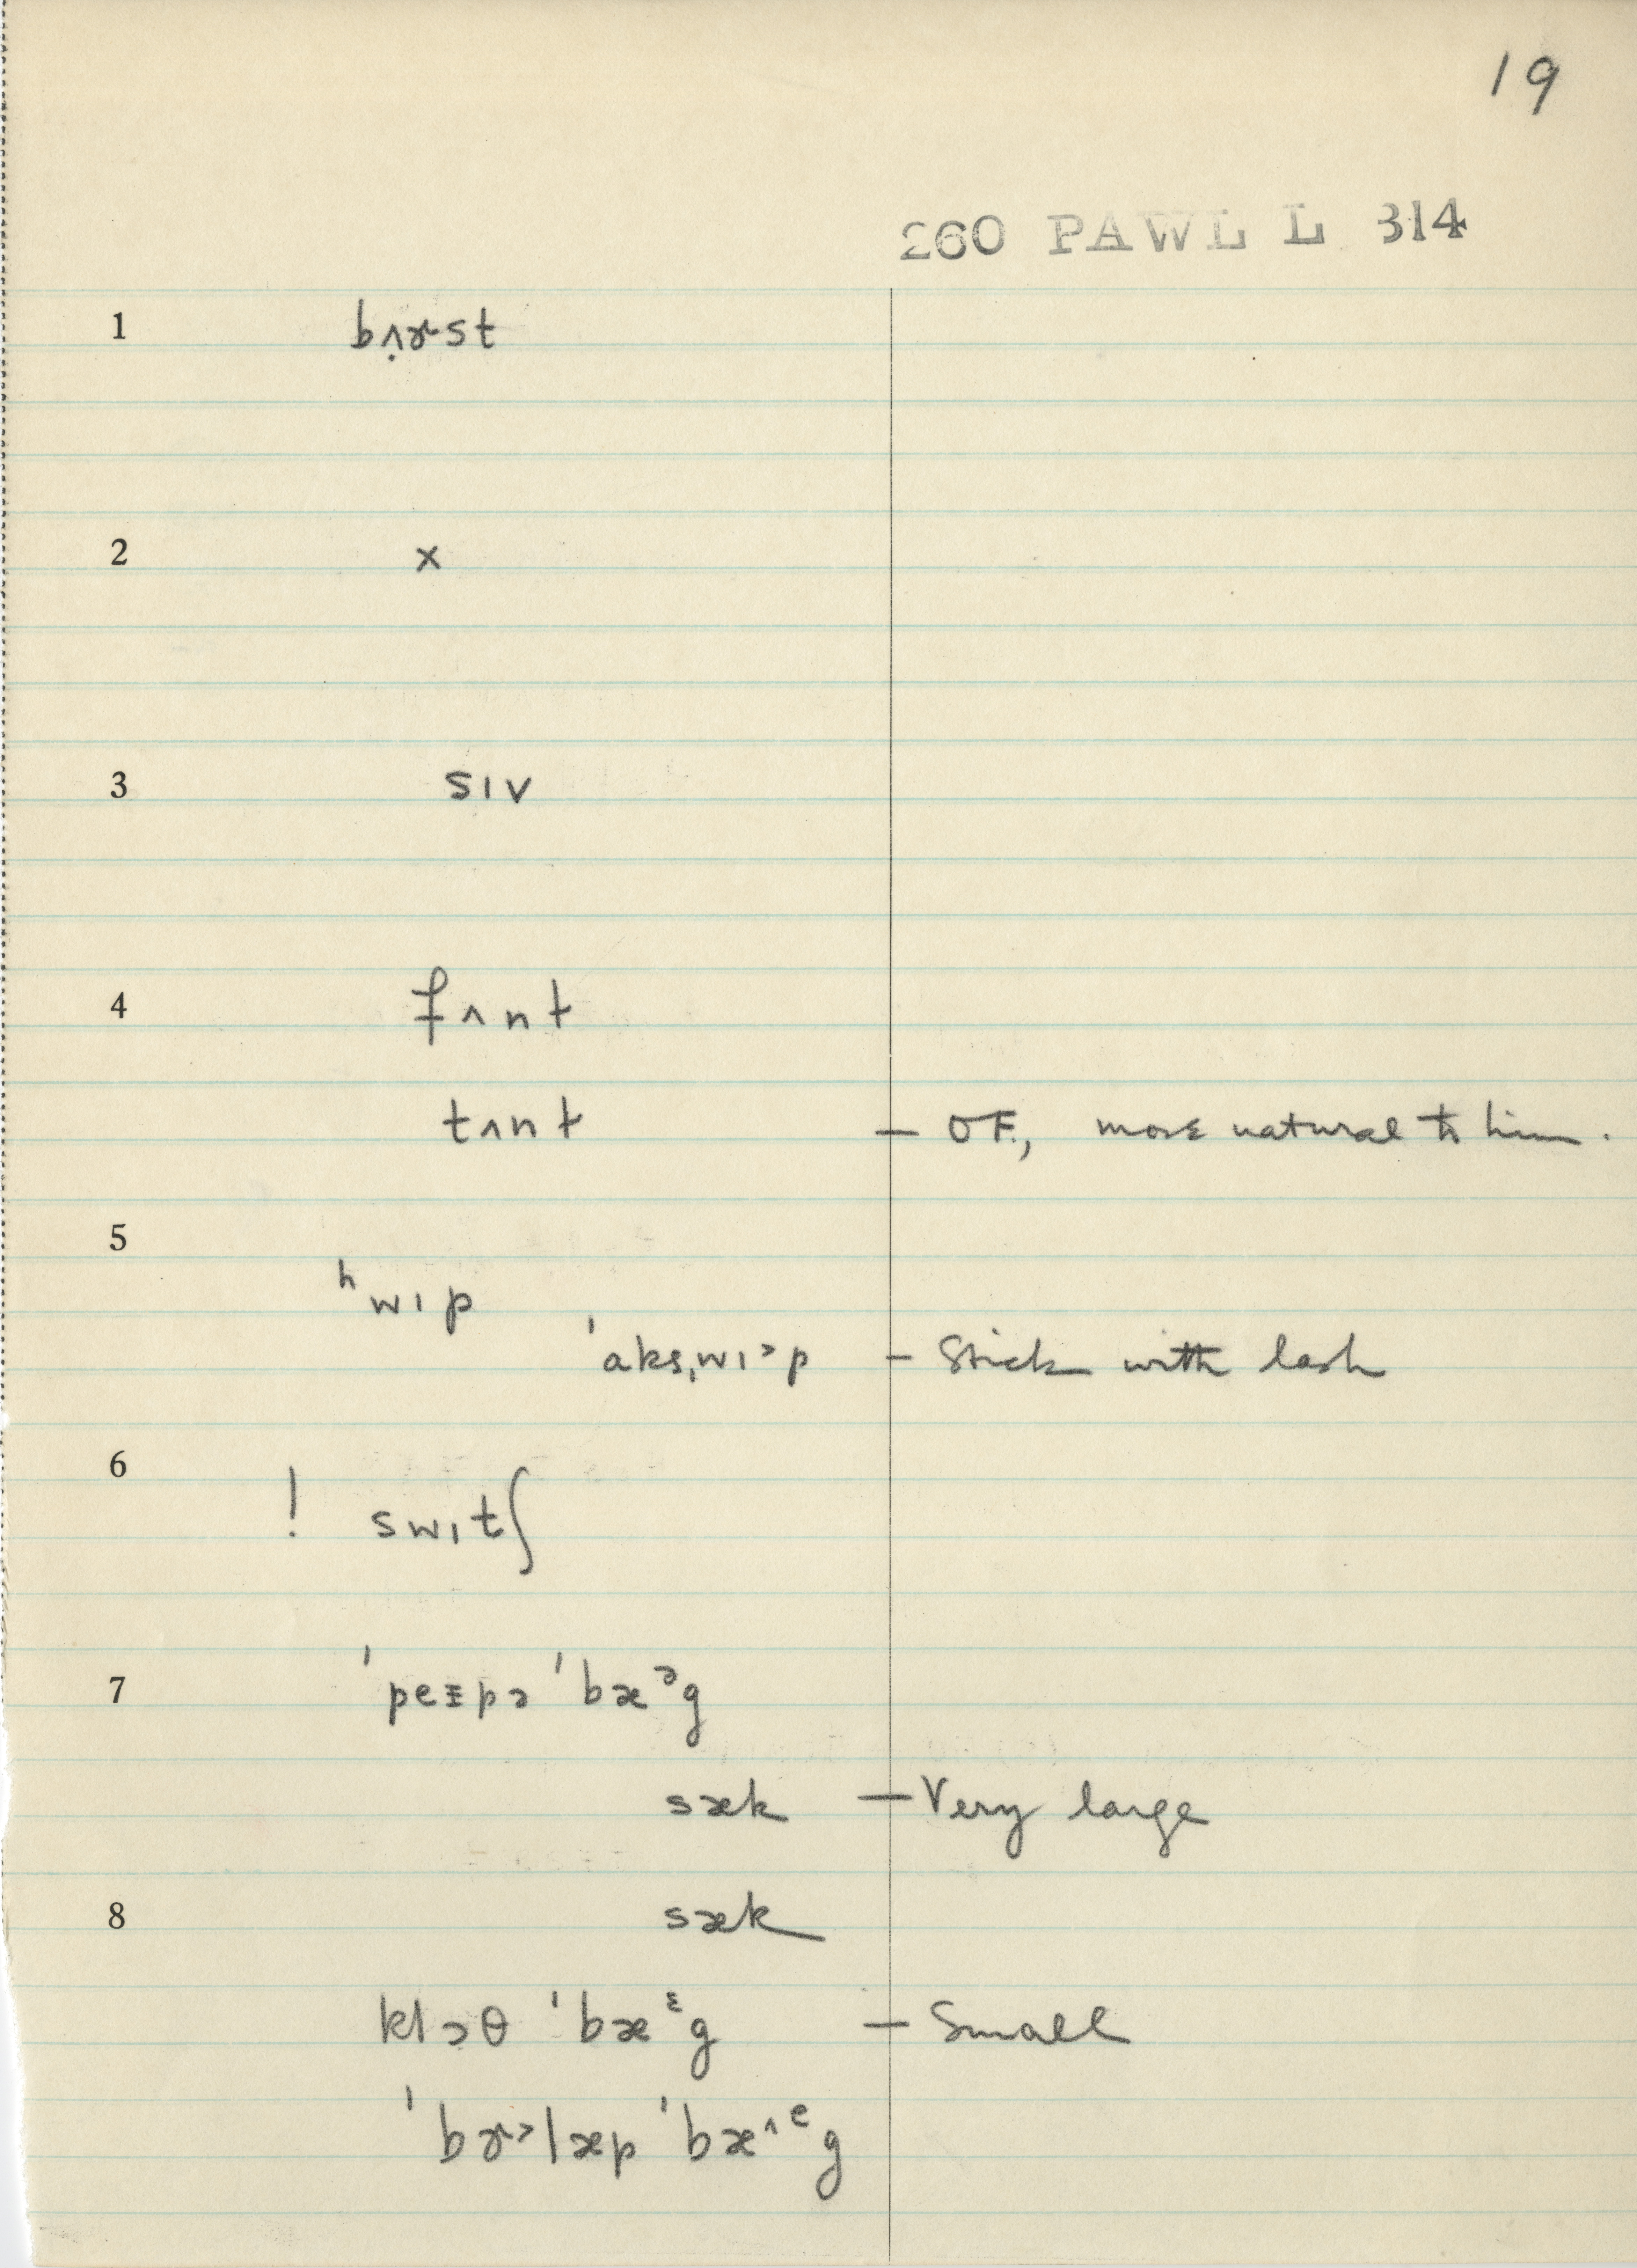 19
260 PAWL L 314
1 bʌ̣ɚst
2 ×
3 sɪv
4 fʌnt
tʌnt — OF, more natural to him.
5
ʰwɪp
ˈaksˌwɪ˃p — Stick with lash
6 ! swɪtʃ
7 ˈpeɪpəˈbæᵊg
sæk — Very large
8 sæk
klɔθ ˈbæᵋg — Small
ˈbɚ˃læp ˈbæ˄ᵉg